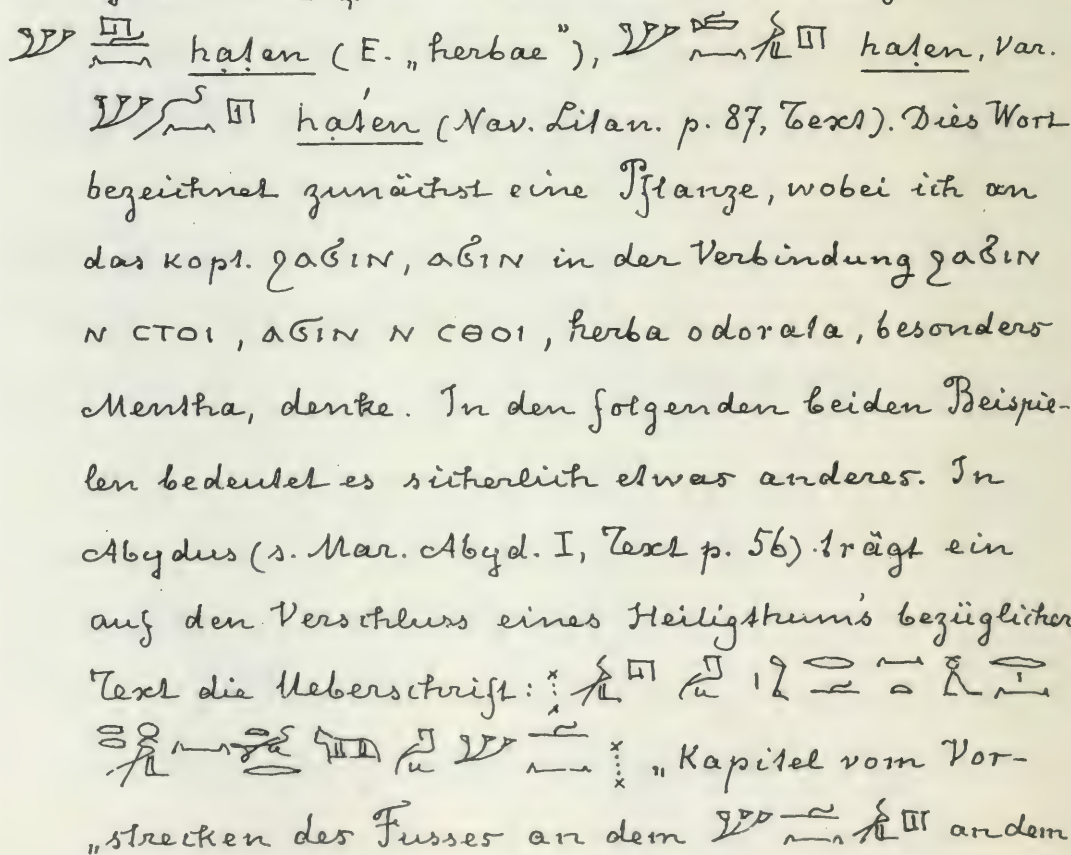 haṭen (E. „herbae"), haṭen, Var.
háten (Nav. Litan. p. 87, Text). Dies Wort
bezeichnet zunächst eine Pflanze, wobei ich an
das kopt. ϩⲁϭⲓⲛ, ⲁϭⲓⲛ in der Verbindung ϩⲁϭⲓⲛ
ⲛ ⲥⲧⲟⲓ, ⲁϭⲓⲛ ⲛ ⲥⲑⲟⲓ, herba odorata, besonders
Mentha, denke. In den folgenden beiden Beispie-
len bedeutet es sicherlich etwas anderes. In
Abydus (s. Mar. Abyd. I, Text p. 56) trägt ein
auf den Verschluss eines Heiligthum's bezüglicher
Text die Ueberschrift:
„Kapitel vom Vor-
„strecken des Fusses an dem an dem